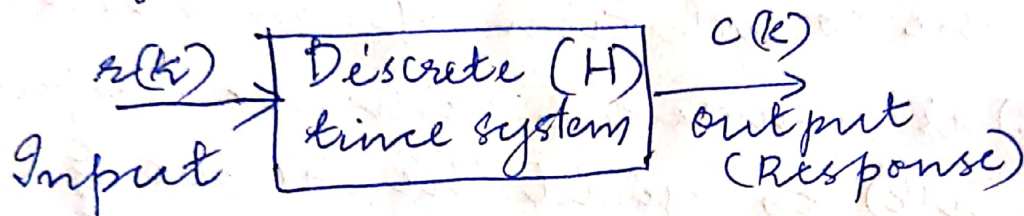 r(k)
Input
Discrete (H)
time system
c(k)
output
(Response)